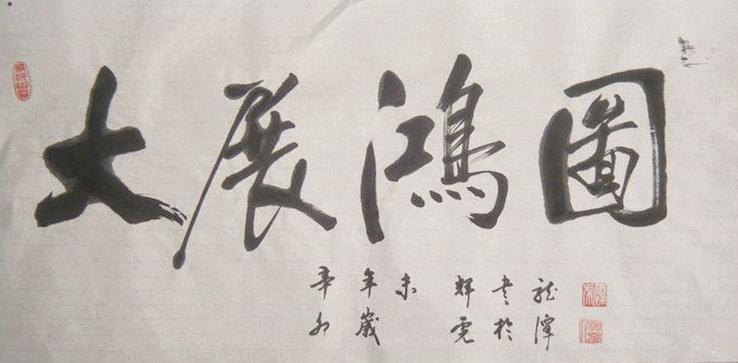 大展鴻圖
辛卯
年歲
末
輝
書於
龍潭